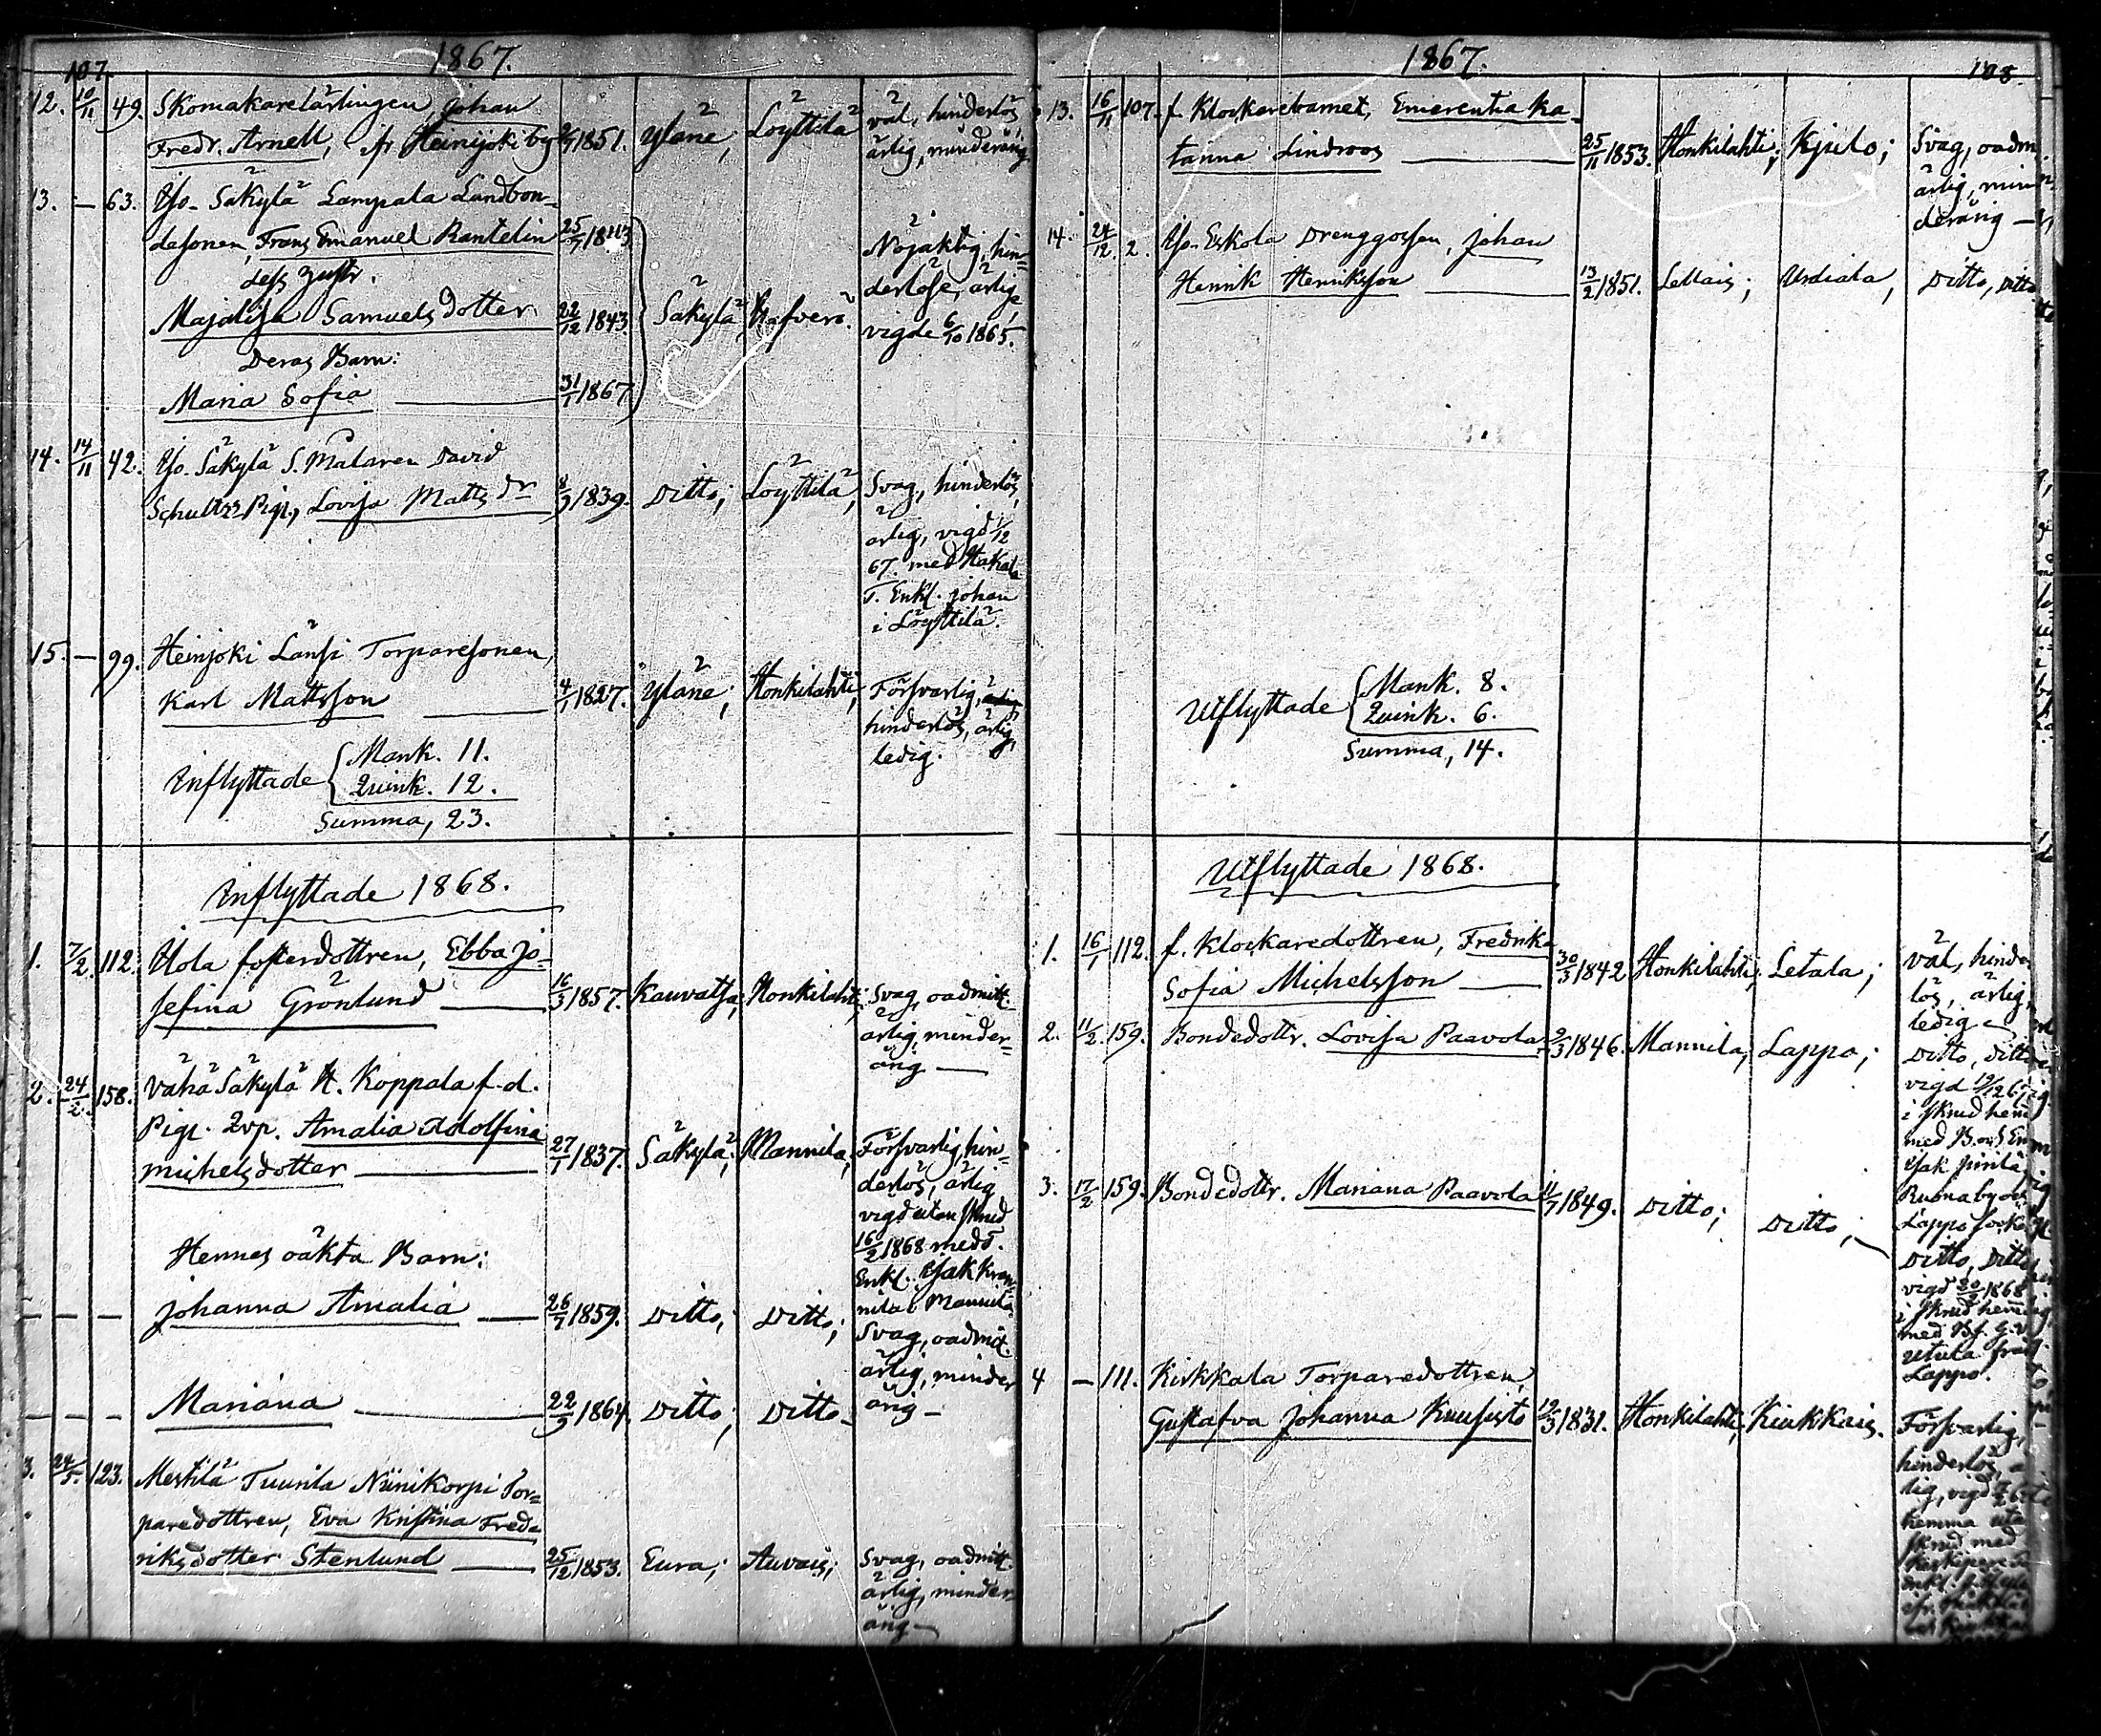 107.
1867.
12. 10/11 49. Skomakarelärlingen, Johan
Fredr. Arnell, ifr Heinijoki by 1851. Yläne, Löyttilä väl, hinderlös
ärlig, minderårig.
13. — 63. Yso-Säkylä Lampala Landbon-
desonen, Frans Emanuel Rantelin 25/7
dess hustr.
Majalisa Samuelsdotter 22/12 1843. Säkylä Hafverö.
Nöjaktig, hin-
derlöse, ärlige,
vigde 6/10 1865.
Deras Barn:
Maria Sofia 31/1 1867
14. 14/11 42. Yso. Säkylä S. Målaren David
Schultzs Pig., Lovisa Matts dr 8/9 1839. Ditto; Löyttilä,
Svag, hinderlös,
ärlig, vigd 1/12
67. med Hakala
T. Enkl. Johan
i Löyttilä.
15. — 99. Heinijoki Länsi Torparesonen,
Karl Mattsson 4/1 1827. Yläne; Honkilahti,
Försvarlig,
hinderlös, ärlig,
ledig.
Inflyttade Mank. 11.
Quink. 12.
Summa, 23.
Inflyttade 1868.
1. 7/2. 112. Uola fosterdottren, Ebba Jo-
sefina Grönlund 16/3 1857. Kauvatsa; Honkilahti;
Svag, oadmitt.
ärlig, minder-
årig —
2. 24/2. 158. Vähä Säkylä H. Koppala f.d.
Pigl. Qvp. Amalia Adolfina
Michelsdotter 27/1 1837. Säkylä; Mannila;
Försvarlig, hin-
derlös, ärlig
vigd utan skrud
16/2 1868 med
Enkl. Isak
Mannila.
Hennes oäkta Barn:
— — — Johanna Amalia 26/7 1859. Ditto; Ditto;
Svag, oadmit.
ärlig, minder
årig —
— — — Mariana 22/9 1864. Ditto; Ditto —
3. 24/5. 123. Mestilä Tuurila Niinikorpi Tor-
paredottren, Eva Kristina Fred-
riksdotter Stenlund 25/12 1853. Eura; Auvais;
Svag, oadmitt.
ärlig, minder-
årig —
1867.
108.
13. 16/11 107. f. Klockarebarnet, Emerentia Ka-
tarina Lindroos 25/11 1853. Honkilahti; Kjulo;
Svag, oadm.
ärlig, min
derårig —
14. 24/12. 2. Yso-Eskola Drenggossen, Johan
Henrik Henriksson 13/2 1851. Lellais; Urdiala, Ditto, Ditto
Utflyttade Mank. 8.
Quink. 6.
Summa, 14.
Utflyttade 1868.
1. 16/1 112. f. Klockaredottren, Fredrika
Sofia Michelsson 30/5 1842 Honkilahti; Letala;
väl, hinder
lös, ärlig,
ledig —
2. 11/2. 159. Bondedottr. Lovisa Paavola 2/3 1846. Mannila; Lappo;
Ditto, Ditto
vigd 19/12 67
i skrud hem
med
Isak
by
Lappo
3. 17/2 159. Bondedottr. Mariana Paavola 11/7 1849. Ditto; Ditto;
Ditto, Ditto
vigd 20/2 1868
i skrud hem
med
Lappo.
4 — 111. Kirkkala Torparedottren,
Gustafva Johanna Kuusisto 19/3 1831. Honkilahti; Kiukkais.
Försvarlig,
hinderlös,
lig, vigd
hemma utan
skrud med